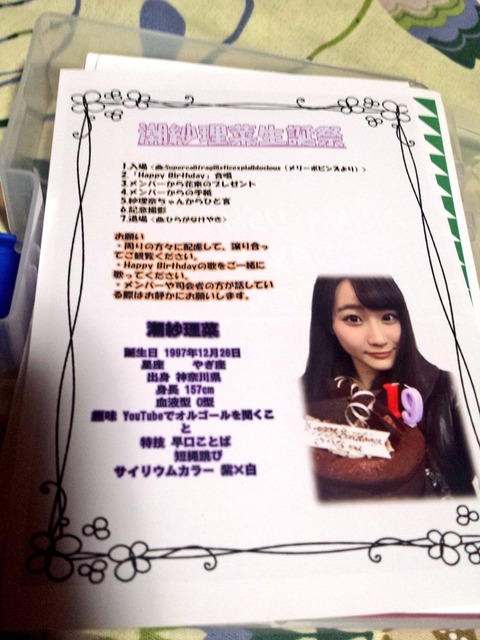 潮紗理菜生誕祭
1.入場(曲:Supercalifragilisticexpialidocious(メリーポピンズより))
2.「Happy Birthday」合唱
3.メンバーから花束のプレゼント
4.メンバーからの手紙
5.紗理菜ちゃんからひと言
6.記念撮影
7.退場(曲:ひらがなけやき)
お願い
・周りの方々に配慮して、譲り合っ
てご観覧ください。
・Happy Birthdayの歌をご一緒に
歌ってください。
・メンバーや司会者の方が話してい
る際はお静かにお願いします。
潮紗理菜
誕生日 1997年12月26日
星座 やぎ座
出身 神奈川県
身長 157cm
血液型 O型
趣味 YouTubeでオルゴールを聞くこ
と
特技 早口ことば
短縄跳び
サイリウムカラー 紫×白
19